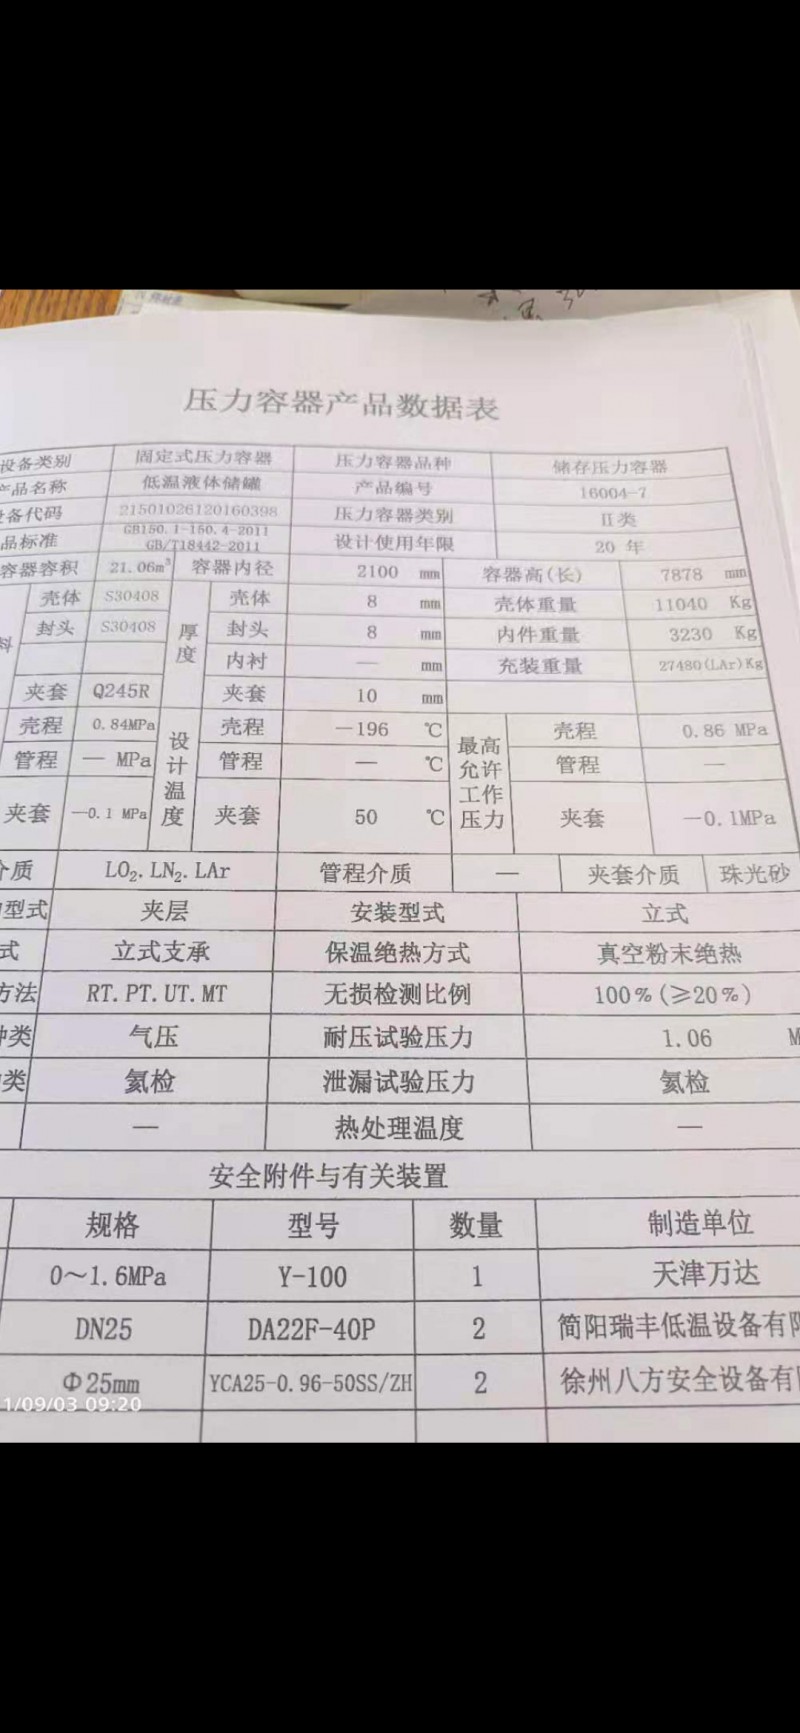 压力容器产品数据表
设备类别 固定式压力容器 压力容器品种 储存压力容器
产品名称 低温液体储罐 产品编号 16004-7
设备代码 21501026120160398 压力容器类别 II类
品标准 GB150.1-150.4-2011 GB/T18442-2011 设计使用年限 20 年
容器容积 21.06m³ 容器内径 2100 mm 容器高(长) 7878 mm
料 壳体 S30408 厚度 壳体 8 mm 壳体重量 11040 Kg
封头 S30408 封头 8 mm 内件重量 3230 Kg
内衬 — mm 充装重量 27480(LAr)Kg
夹套 Q245R 夹套 10 mm
壳程 0.84MPa 设计温度 壳程 -196 ℃ 最高允许工作压力 壳程 0.86 MPa
管程 — MPa 管程 — ℃ 管程 —
夹套 -0.1 MPa 夹套 50 ℃ 夹套 -0.1MPa
介质 LO₂.LN₂.LAr 管程介质 — 夹套介质 珠光砂
型式 夹层 安装型式 立式
式 立式支承 保温绝热方式 真空粉末绝热
方法 RT.PT.UT.MT 无损检测比例 100%(≥20%)
种类 气压 耐压试验压力 1.06 M
类 氦检 泄漏试验压力 氦检
— 热处理温度 —
安全附件与有关装置
规格 型号 数量 制造单位
0～1.6MPa Y-100 1 天津万达
DN25 DA22F-40P 2 简阳瑞丰低温设备有限
Φ25mm YCA25-0.96-50SS/ZH 2 徐州八方安全设备有限
1/09/03 09:20